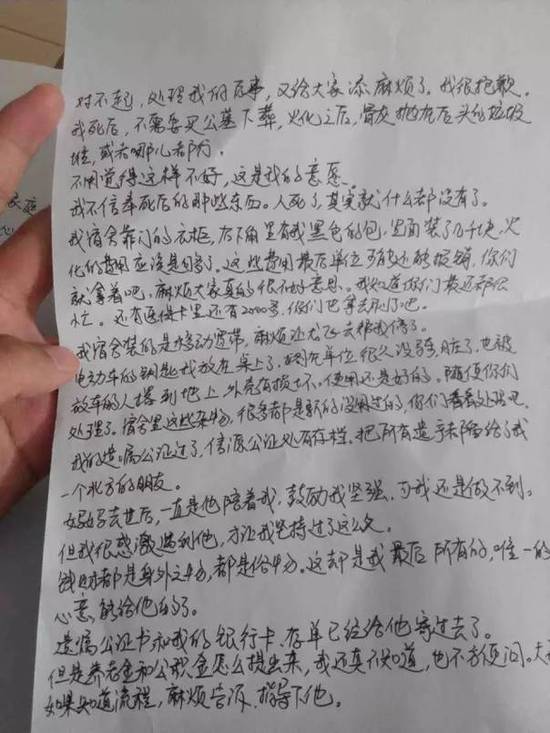 对不起，处理我的后事，又给大家添麻烦了。我很抱歉。
我死后，不需要买公墓下葬，火化之后，骨灰抛在后头的垃圾
堆，或者哪儿都行。
不用觉得这样不好，这是我的意愿。
我不信奉死后的那些东西。人死了，其实就什么都没有了。
我宿舍靠门的衣柜，右下角里有我黑色的包，里面装了几千块，火
化的费用应该是够了。这些费用最后单位可能还能报销，你们
就拿着吧，麻烦大家真的很不好意思。我知道你们最近都很
忙。还有医保卡里还有2000多，你们也拿去用了吧。
我宿舍装的是移动宽带，麻烦让龙飞去帮我停了。
电动车的钥匙我放在桌上了，这车在单位很久没骑，脏了，也被
放车的人撂到地上，外壳有损坏。使用还是好的。随便你们
处理了。宿舍里这些杂物，很多都是新的没用过的，你们看着处理吧。
我的遗嘱公证过了，信源公证处有存档。把所有遗产都留给了我
一个北方的朋友。
妈妈去世后，一直是他陪着我，鼓励我坚强，可我还是做不到。
但我很感激遇到他，才让我坚持过了这么久。
钱财都是身外之物，都是俗物。这却是我最后所有的，唯一的
心意，能给他的了。
遗嘱公证书和我的银行卡、存单已经给他寄过去了。
但是养老金和公积金怎么提出来，我还真不知道，也不方便问。大
如果知道流程，麻烦告诉、指导下他。